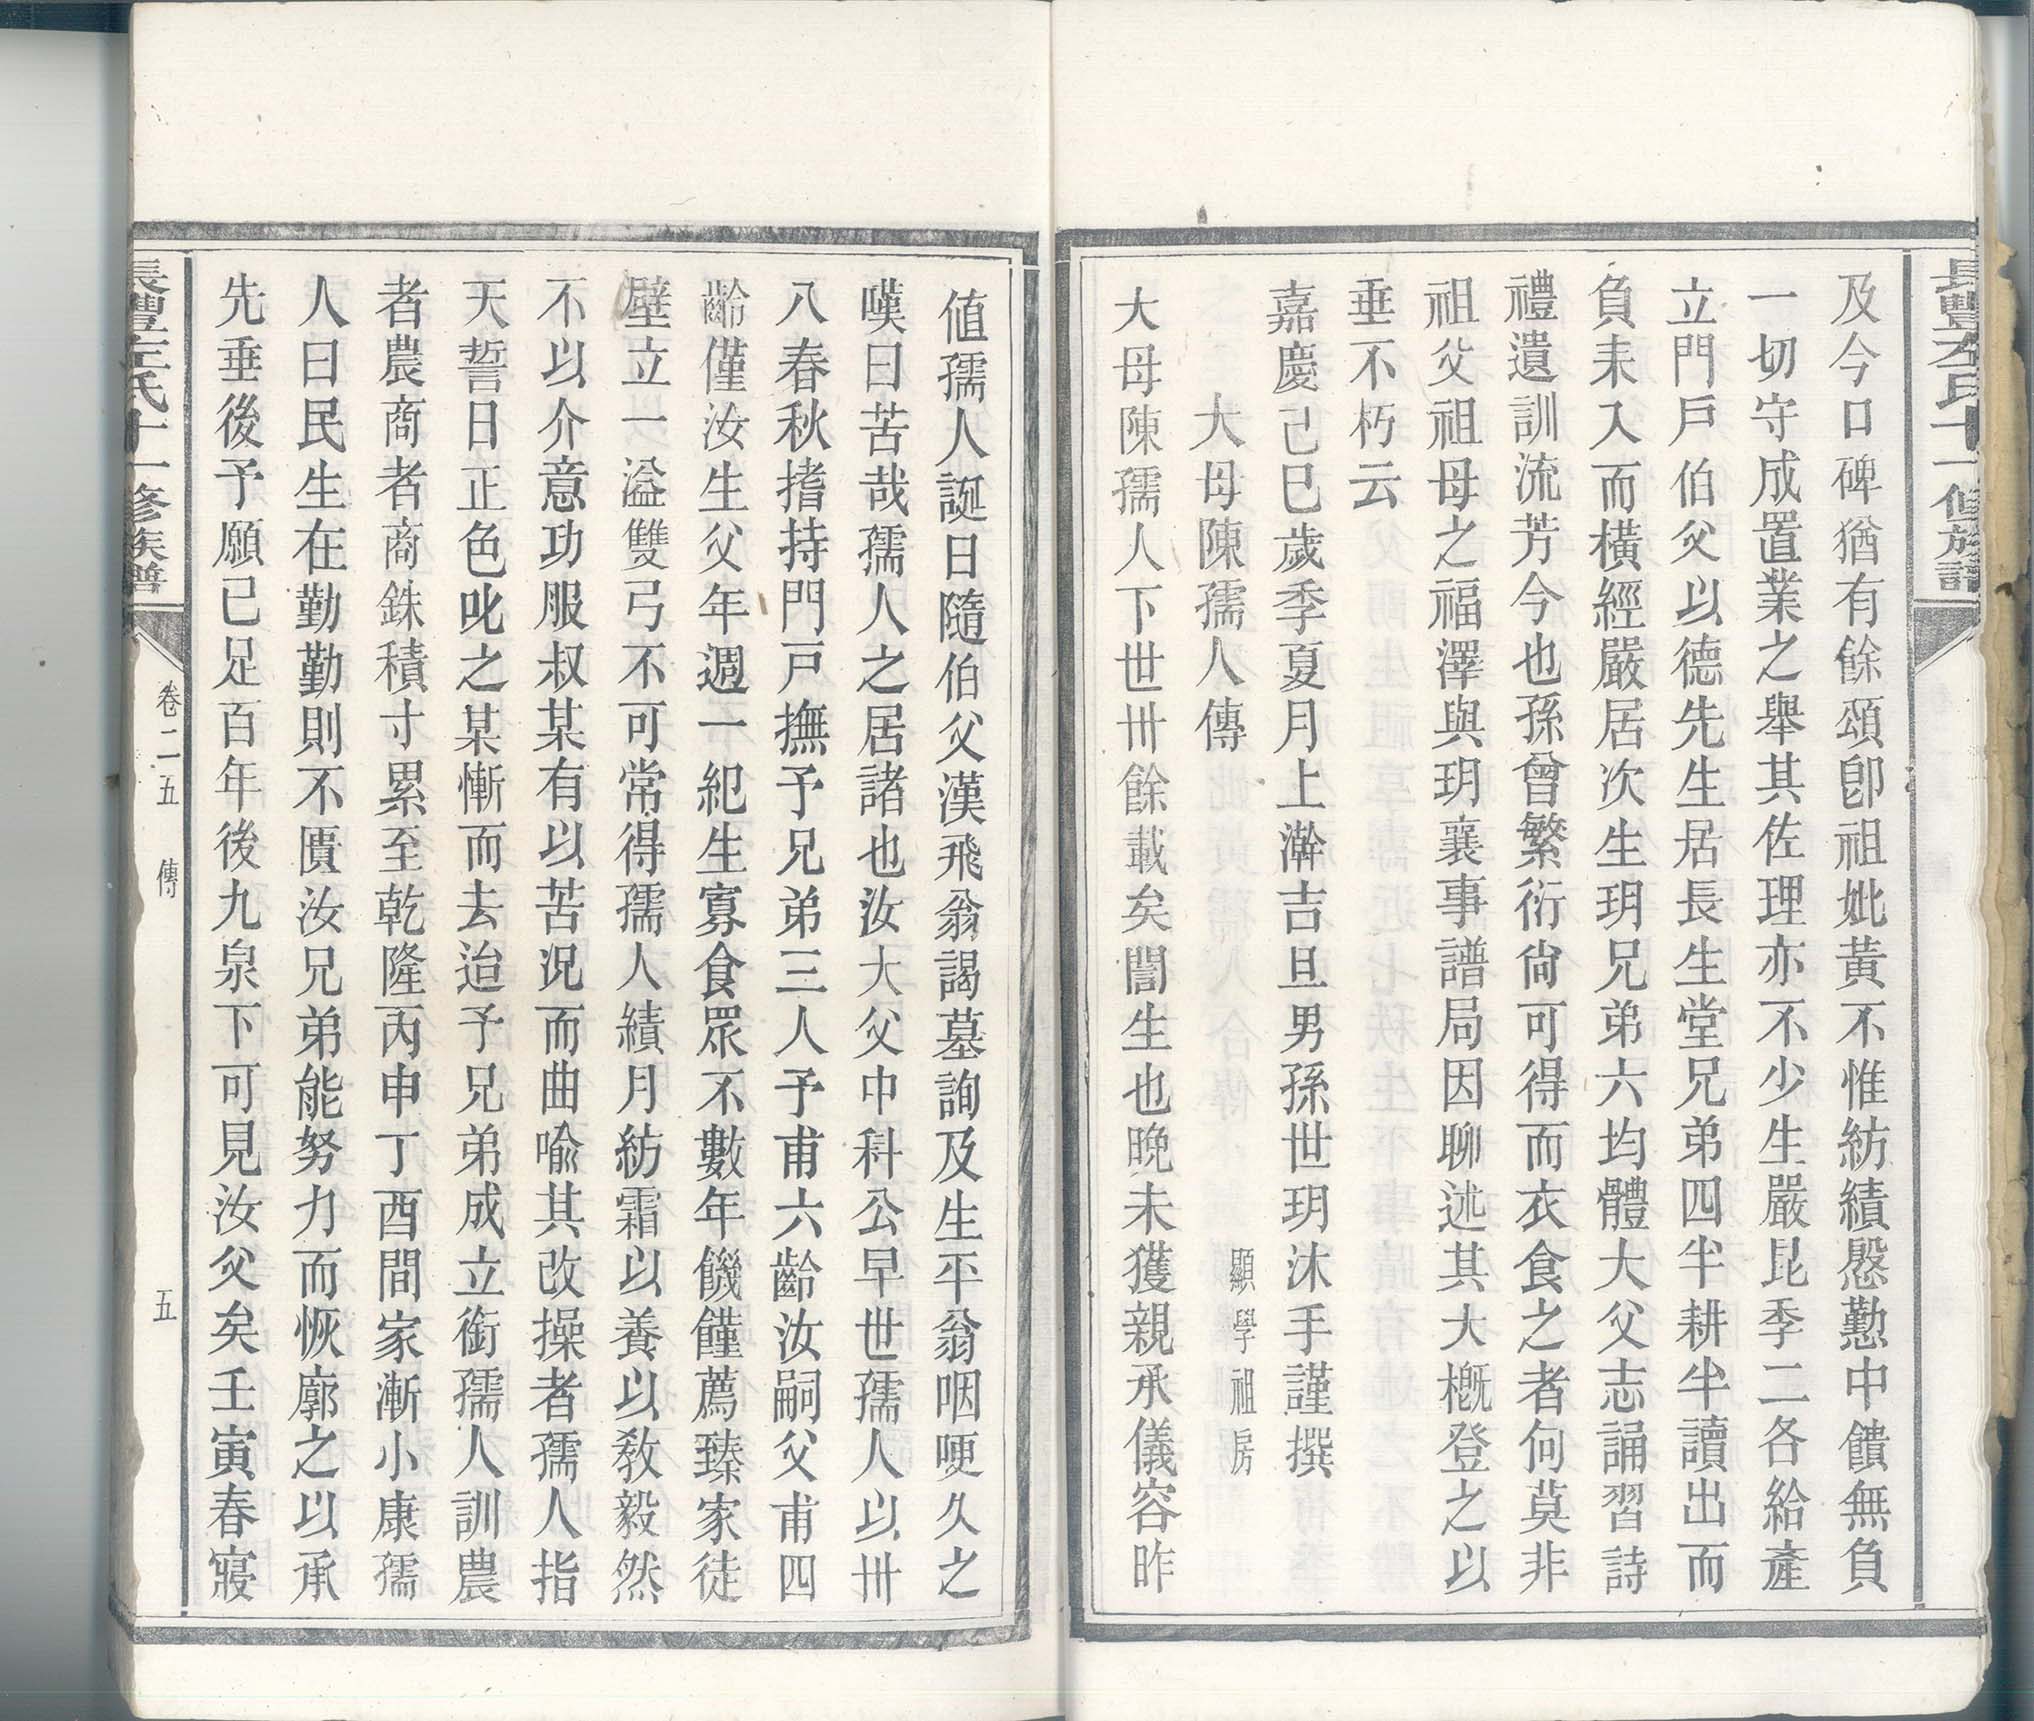 長豐左氏十一修族譜
及今口碑猶有餘頌卽祖妣黃不惟紡績慇懃中饋無負
一切守成置業之舉其佐理亦不少生嚴昆季二各給產
立門戶伯父以德先生居長生堂兄弟四半耕半讀出而
負耒入而橫經嚴居次生玥兄弟六均體大父志誦習詩
禮遺訓流芳今也孫曾繁衍尙可得而衣食之者何莫非
祖父祖母之福澤與玥襄事譜局因聊述其大槪登之以
垂不朽云
嘉慶己巳歲季夏月上澣吉旦男孫世玥沐手謹撰
大母陳孺人傳 顯學祖房
大母陳孺人下世卅餘載矣誾生也晚未獲親承儀容昨
値孺人誕日隨伯父漢飛翁謁墓詢及生平翁咽哽久之
嘆曰苦哉孺人之居諸也汝大父中科公早世孺人以卅
八春秋搘持門戸撫予兄弟三人予甫六齡汝嗣父甫四
齡僅汝生父年週一紀生寡食眾不數年饑饉薦臻家徒
壁立一溢雙弓不可常得孺人績月紡霜以養以敎毅然
不以介意功服叔某有以苦況而曲喩其改操者孺人指
天誓日正色叱之某慚而去迨予兄弟成立銜孺人訓農
者農商者商銖積寸累至乾隆丙申丁酉間家漸小康孺
人曰民生在勤勤則不匱汝兄弟能努力而恢廓之以承
先垂後予願已足百年後九泉下可見汝父矣壬寅春寢
長豐左氏十一修族譜
卷二五 傳 五